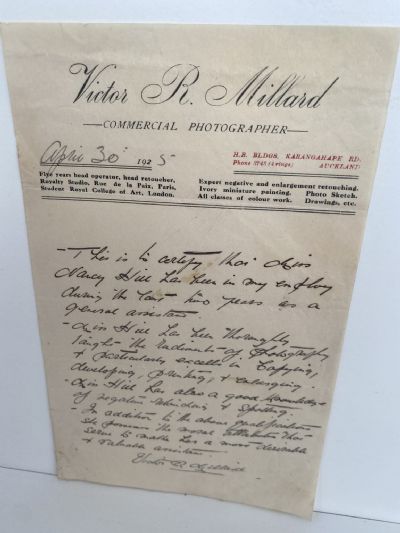 Victor R. Millard
—COMMERCIAL PHOTOGRAPHER—
April 30 1925
H.B. BLDGS, KARANGAHAPE RD.
Phone (Evings) AUCKLAND
Five years head operator, head retoucher,
Royalty Studio, Rue de la Paix, Paris,
Student Royal College of Art, London.
Expert negative and enlargement retouching.
Ivory miniature painting. Photo Sketch.
All classes of colour work. Drawings, etc.
- This is to certify that Miss
Nancy Hill has been in my employ
during the last two years as a
general assistant.
- Miss Hill has been thoroughly
taught the rudiments of Photography
& particularly excells in Copying,
developing, printing, & enlarging.
- Miss Hill has also a good knowledge
of negative retouching & spotting.
- In addition to the above qualifications
she possesses the moral attributes that
serve to make her a most desirable
& valuable assistant
Victor R. Millard